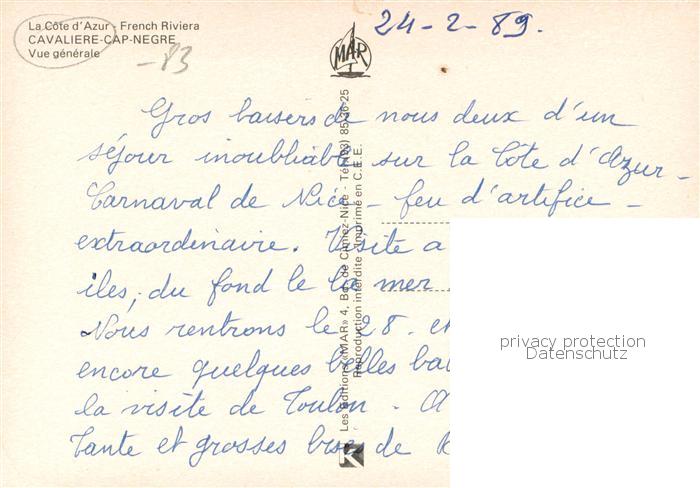 La Côte d'Azur - French Riviera
CAVALIERE-CAP-NEGRE
Vue générale
-83
MAR
24-2-89.
Gros baisers de nous deux d'un
séjour inoubliable sur la Côte d'Azur -
Carnaval de Nice - feu d'artifice -
extraordinaire. Visite a
îles, du fond le la mer
Nous rentrons le 28. et
encore quelques belles
la visite de Toulon. A
Tante et grosses bises de
Les Editions «MAR» 4, Bd. de Cimiez-Nice - Tél. (93) 85-36-25
Reproduction interdite - Imprimé en C.E.E.
privacy protection
Datenschutz